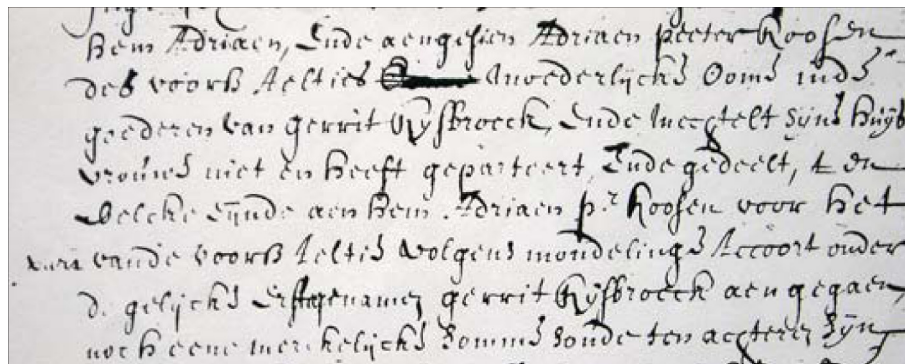 hem Adriaen, Ende aengesien Adriaen peeter Koosen
des voors Aelties moederlijcke Oome inde
goederen van gerrit Rysbroeck, Ende Mechtelt syne huys
vrouwe niet en heeft geparteert, Ende gedeelt, t en
welcke eynde aen hem Adriaen pr Koosen voor het
vande voors Aeltie volgens mondelinge Accoort onder
de gelijcke erffgenamen gerrit Rysbroeck aengegaen,
noch eene merckelijcke somme soude ten achteren syn